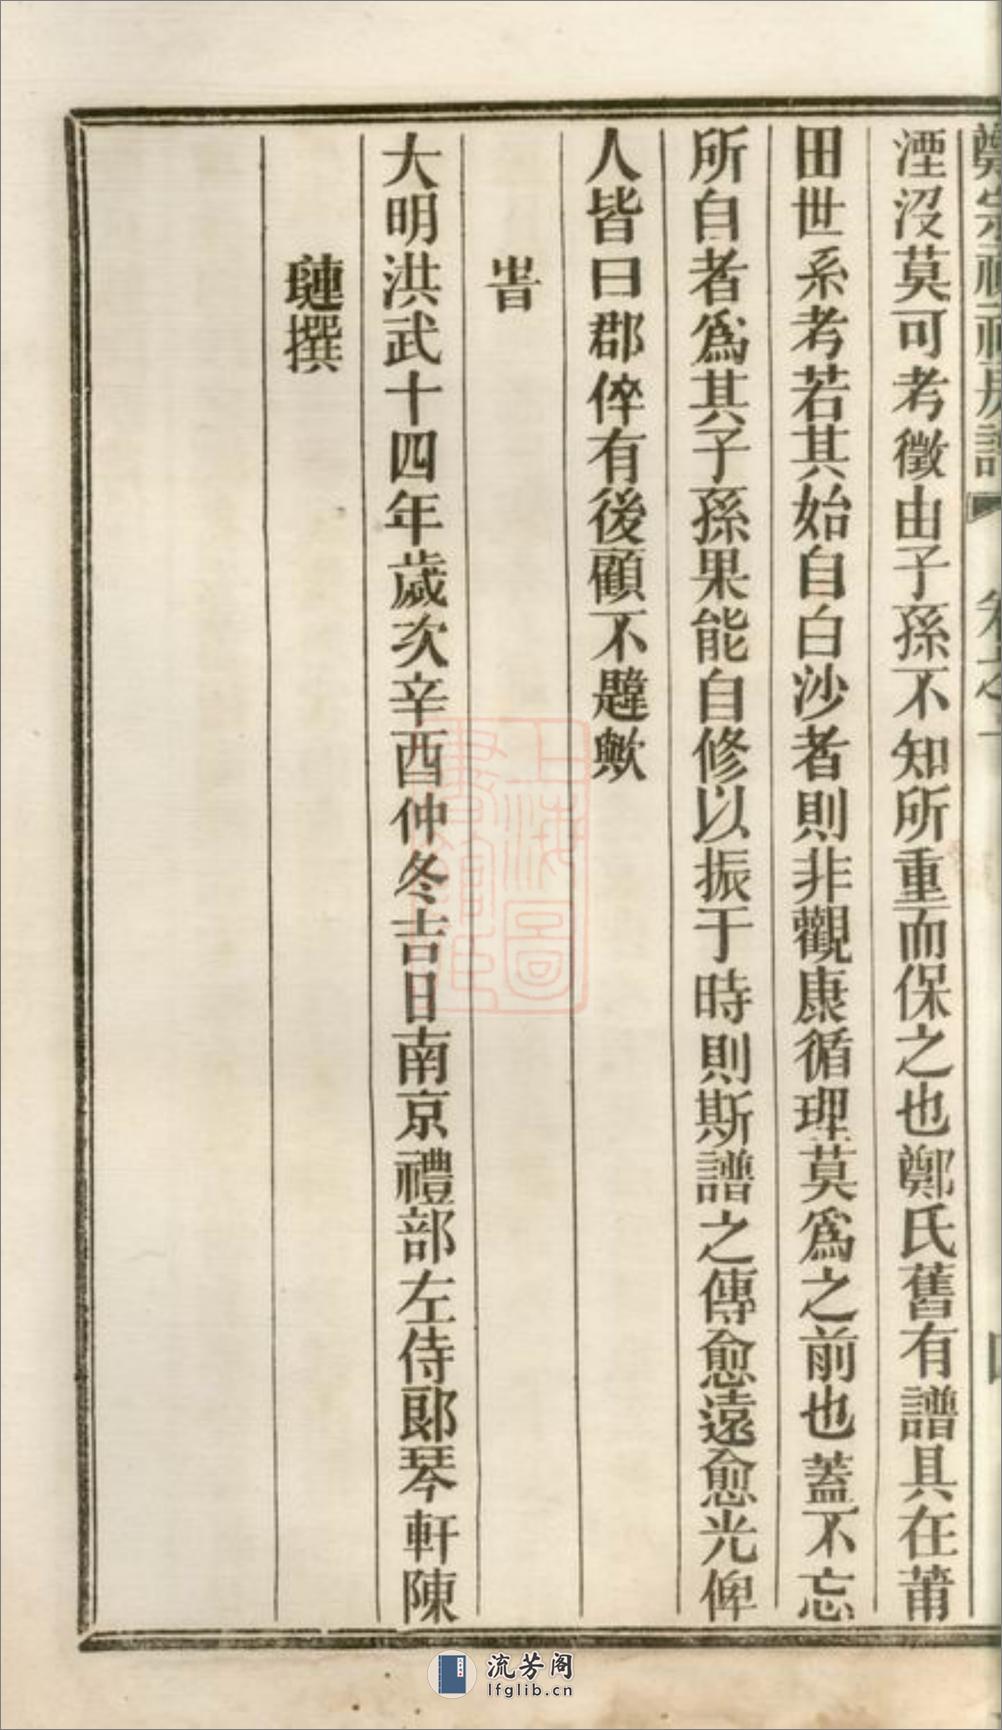 湮沒莫可考徵由子孫不知所重而保之也鄭氏舊有譜具在莆
田世系考若其始自白沙者則非觀康循理莫爲之前也蓋不忘
所自者爲其子孫果能自修以振于時則斯譜之傳愈遠愈光俾
人皆曰郡倅有後顧不韙歟
旹
大明洪武十四年歲次辛酉仲冬吉日南京禮部左侍郎琴軒陳
璉撰
上海圖
書館印
流芳阁
lfglib.cn